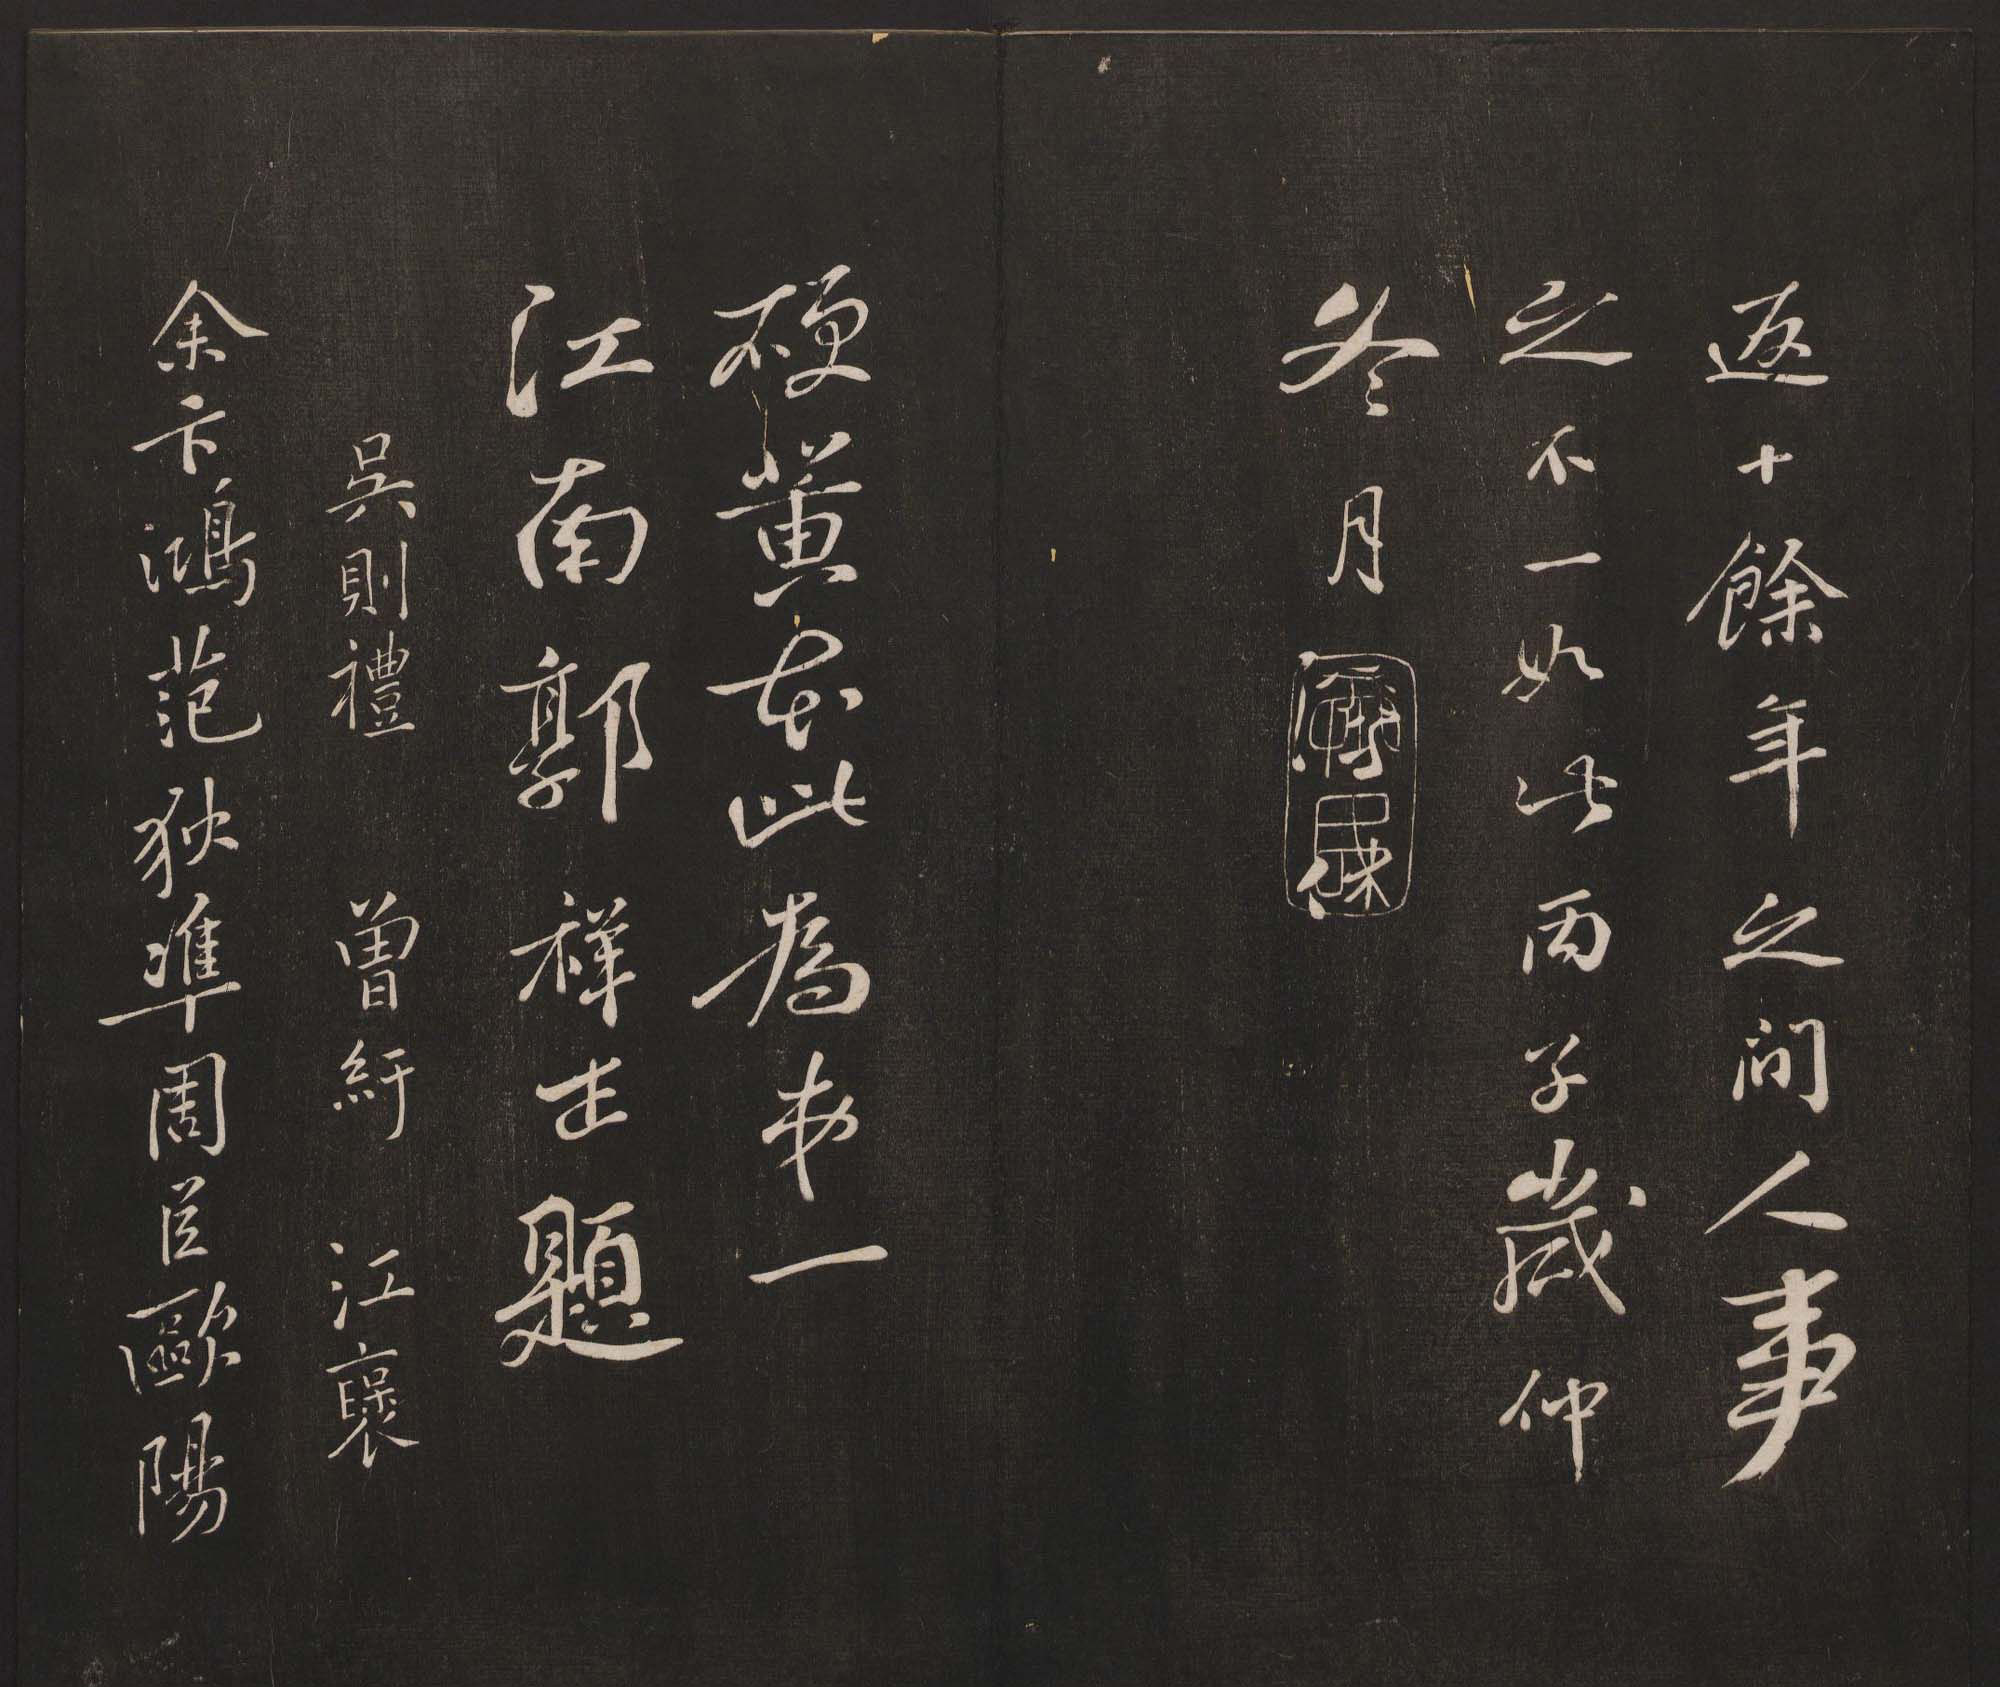 返十餘年之間人事
之不一如此丙子歲仲
冬月
硬黃本此為第一
江南郭祥正題
吳則禮 曾紆 江襃
余卞鴻范狄準周臣歐陽